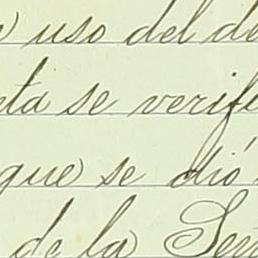 uso del de
ta se verifi
que se dió
de la Señ